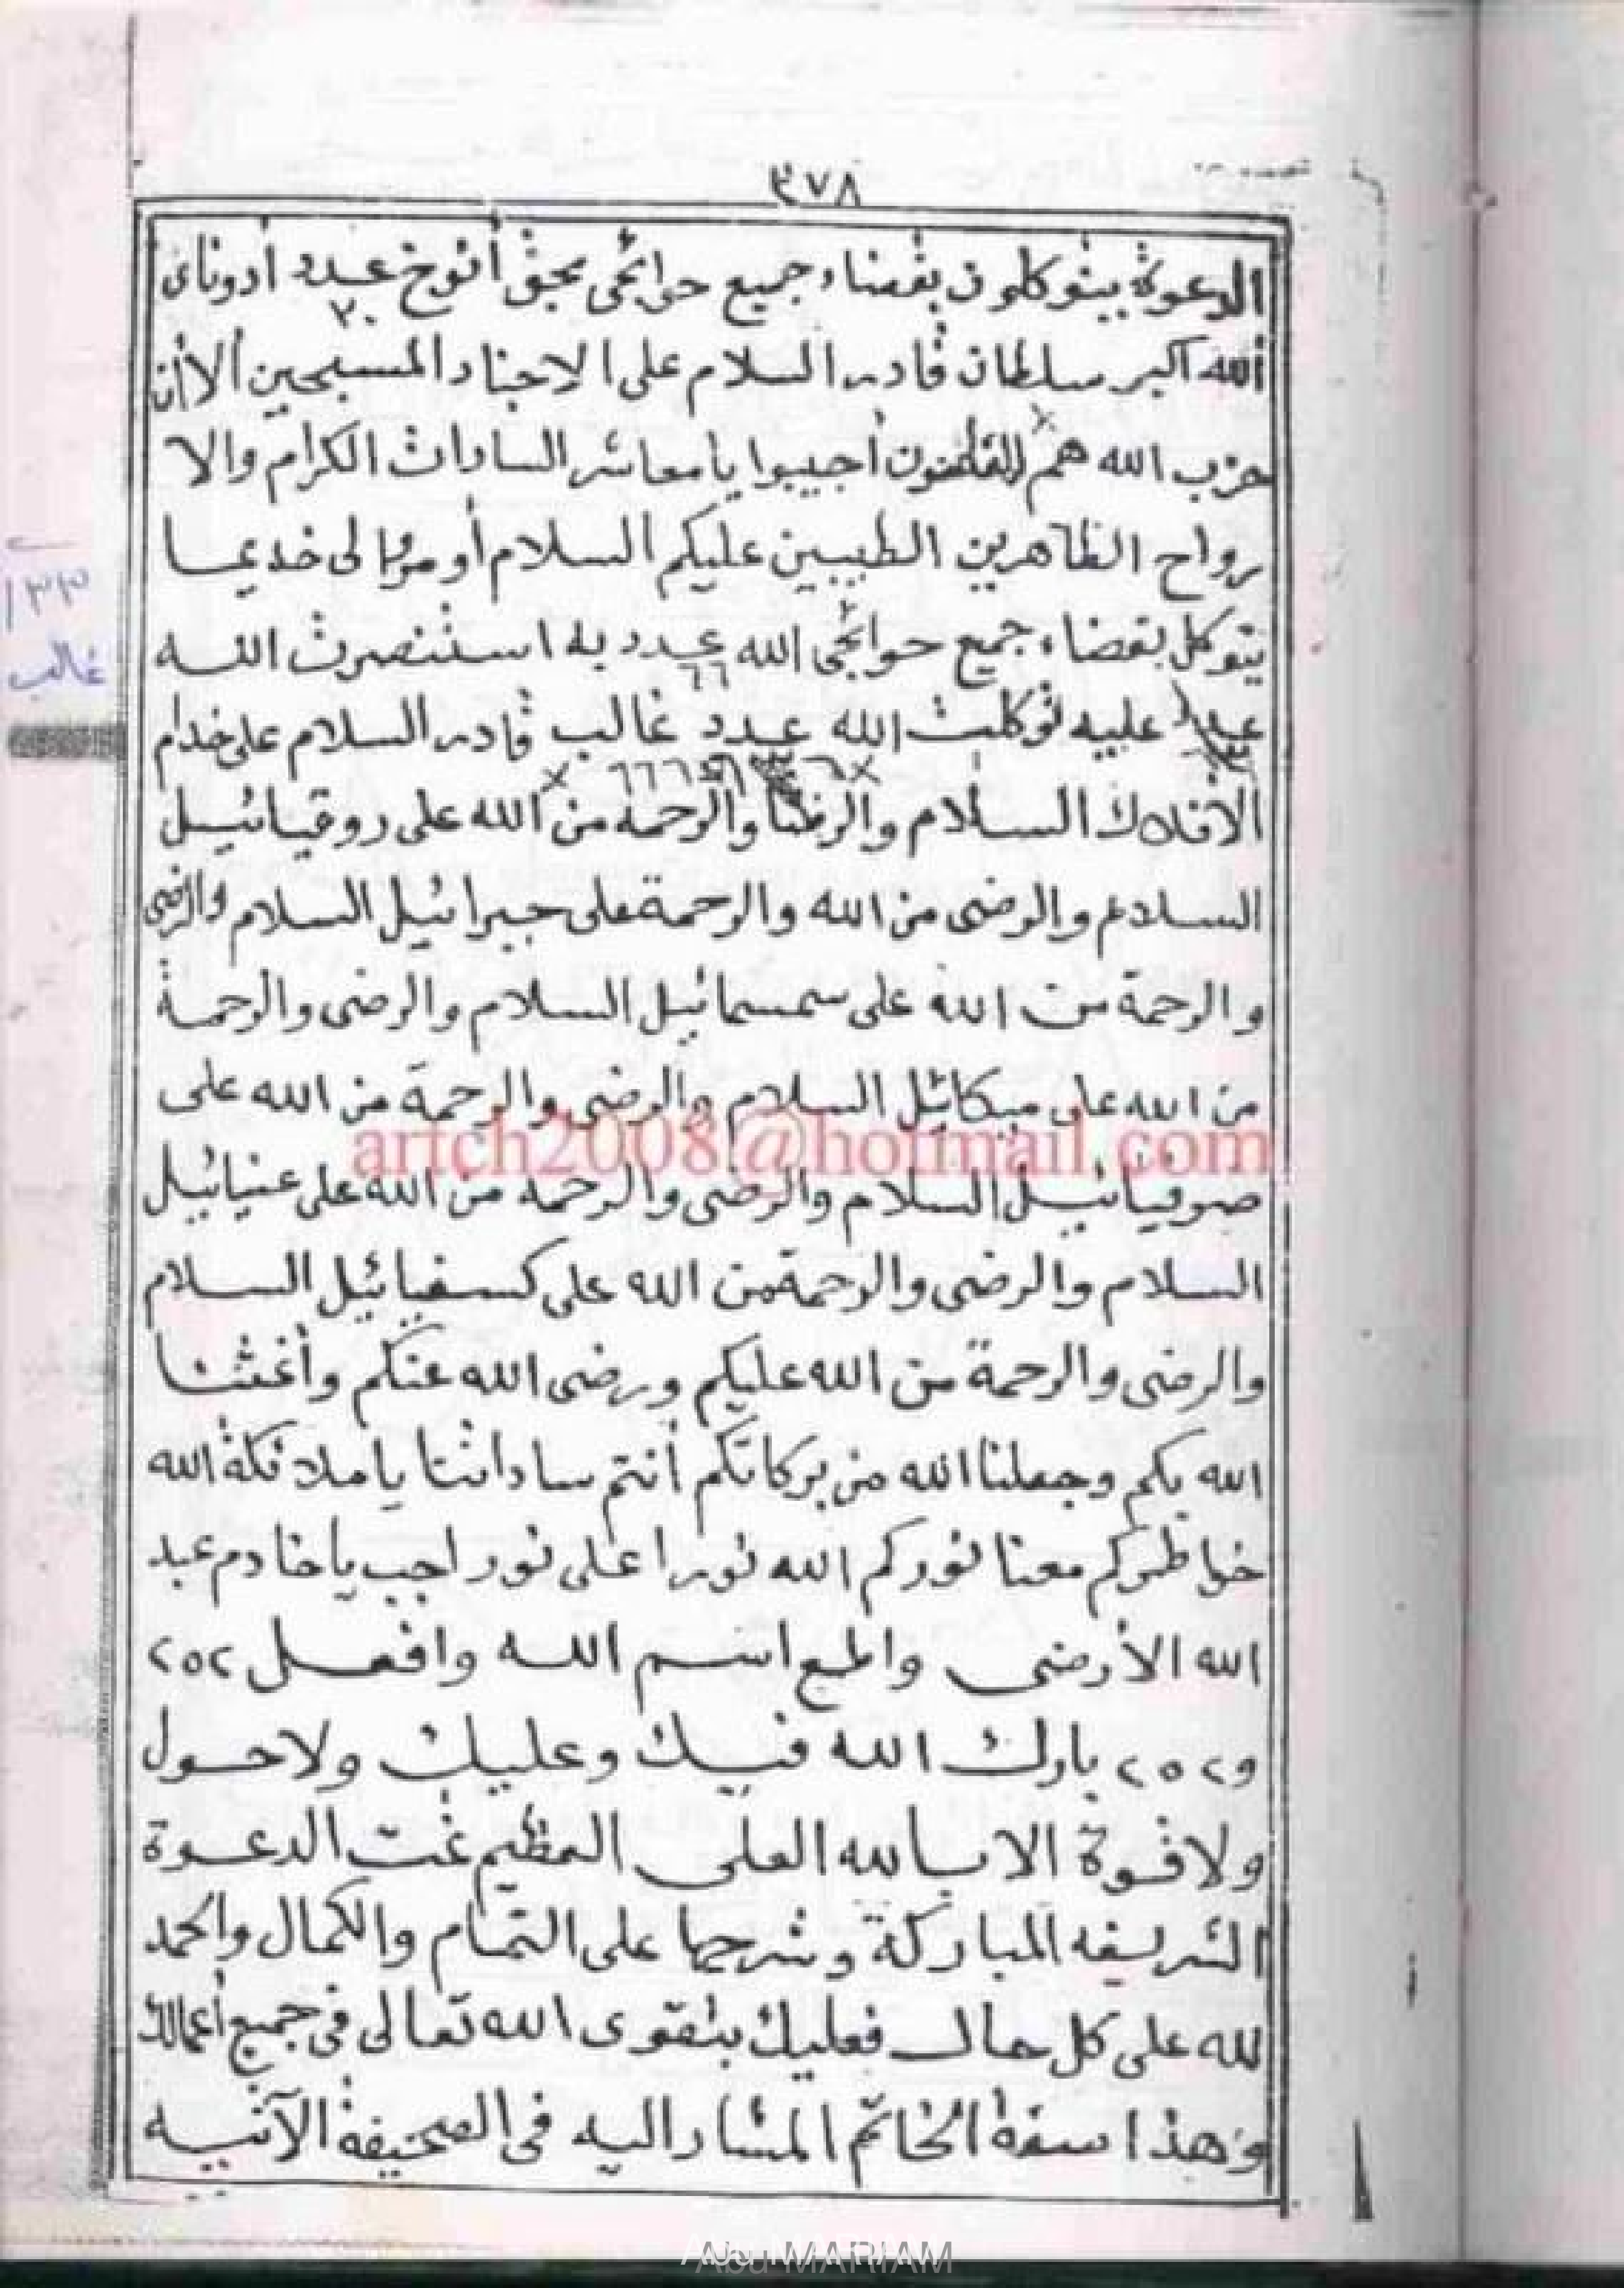 ٣٧٨
الدعوة يتوكلون بقضاء جميع حوائجى بحق أنوخ عدد أدوناى
٢٠
الله اكبر سلطان قادر السلام على الاجناد المسبحين ألا أن
حزب الله هم أجيبوا يا معاشر السادات الكرام والا
رواح الطاهرين الطيبين عليكم السلام أو مروا لى خديما
يتوكل بقضاء جميع حوائجى الله عدد به استنصرت الله
٦٦
عدد عليه توكلت الله عدد غالب قادر السلام على خدام
الافلاك السلام والرضا والرحمة من الله على روقيائيل
السلام والرضى من الله والرحمة على جبرائيل السلام والرضى
والرحمة من الله على سمسمائيل السلام والرضى والرحمة
من الله على ميكائيل السلام والرضى والرحمة من الله على
artch2008@hotmail.com
صرفيائيل السلام والرضى والرحمة من الله على عنيائيل
السلام والرضى والرحمة من الله على كسفيائيل السلام
والرضى والرحمة من الله عليكم ورضى الله عنكم وأغثنا
الله بكم وجعلنا الله من بركاتكم أنتم ساداتنا يا ملائكة الله
خواطركم معنا نوركم الله نورا على نور اجب يا خادم عبد
الله الأرضى والمع اسم الله وافعل ٢٥٢
و٢٥٢ بارك الله فيك وعليك ولا حول
ولا قوة الا بالله العلى العظيم تمت الدعوة
الشريفه المباركة وشرحها على التمام والكمال والحمد
لله على كل حال فعليك بتقوى الله تعالى فى جميع أعمالك
وهذا صفة الخاتم المشار اليه فى الصحيفة الآتيه
١٣٣
غالب
Abu MARIAM